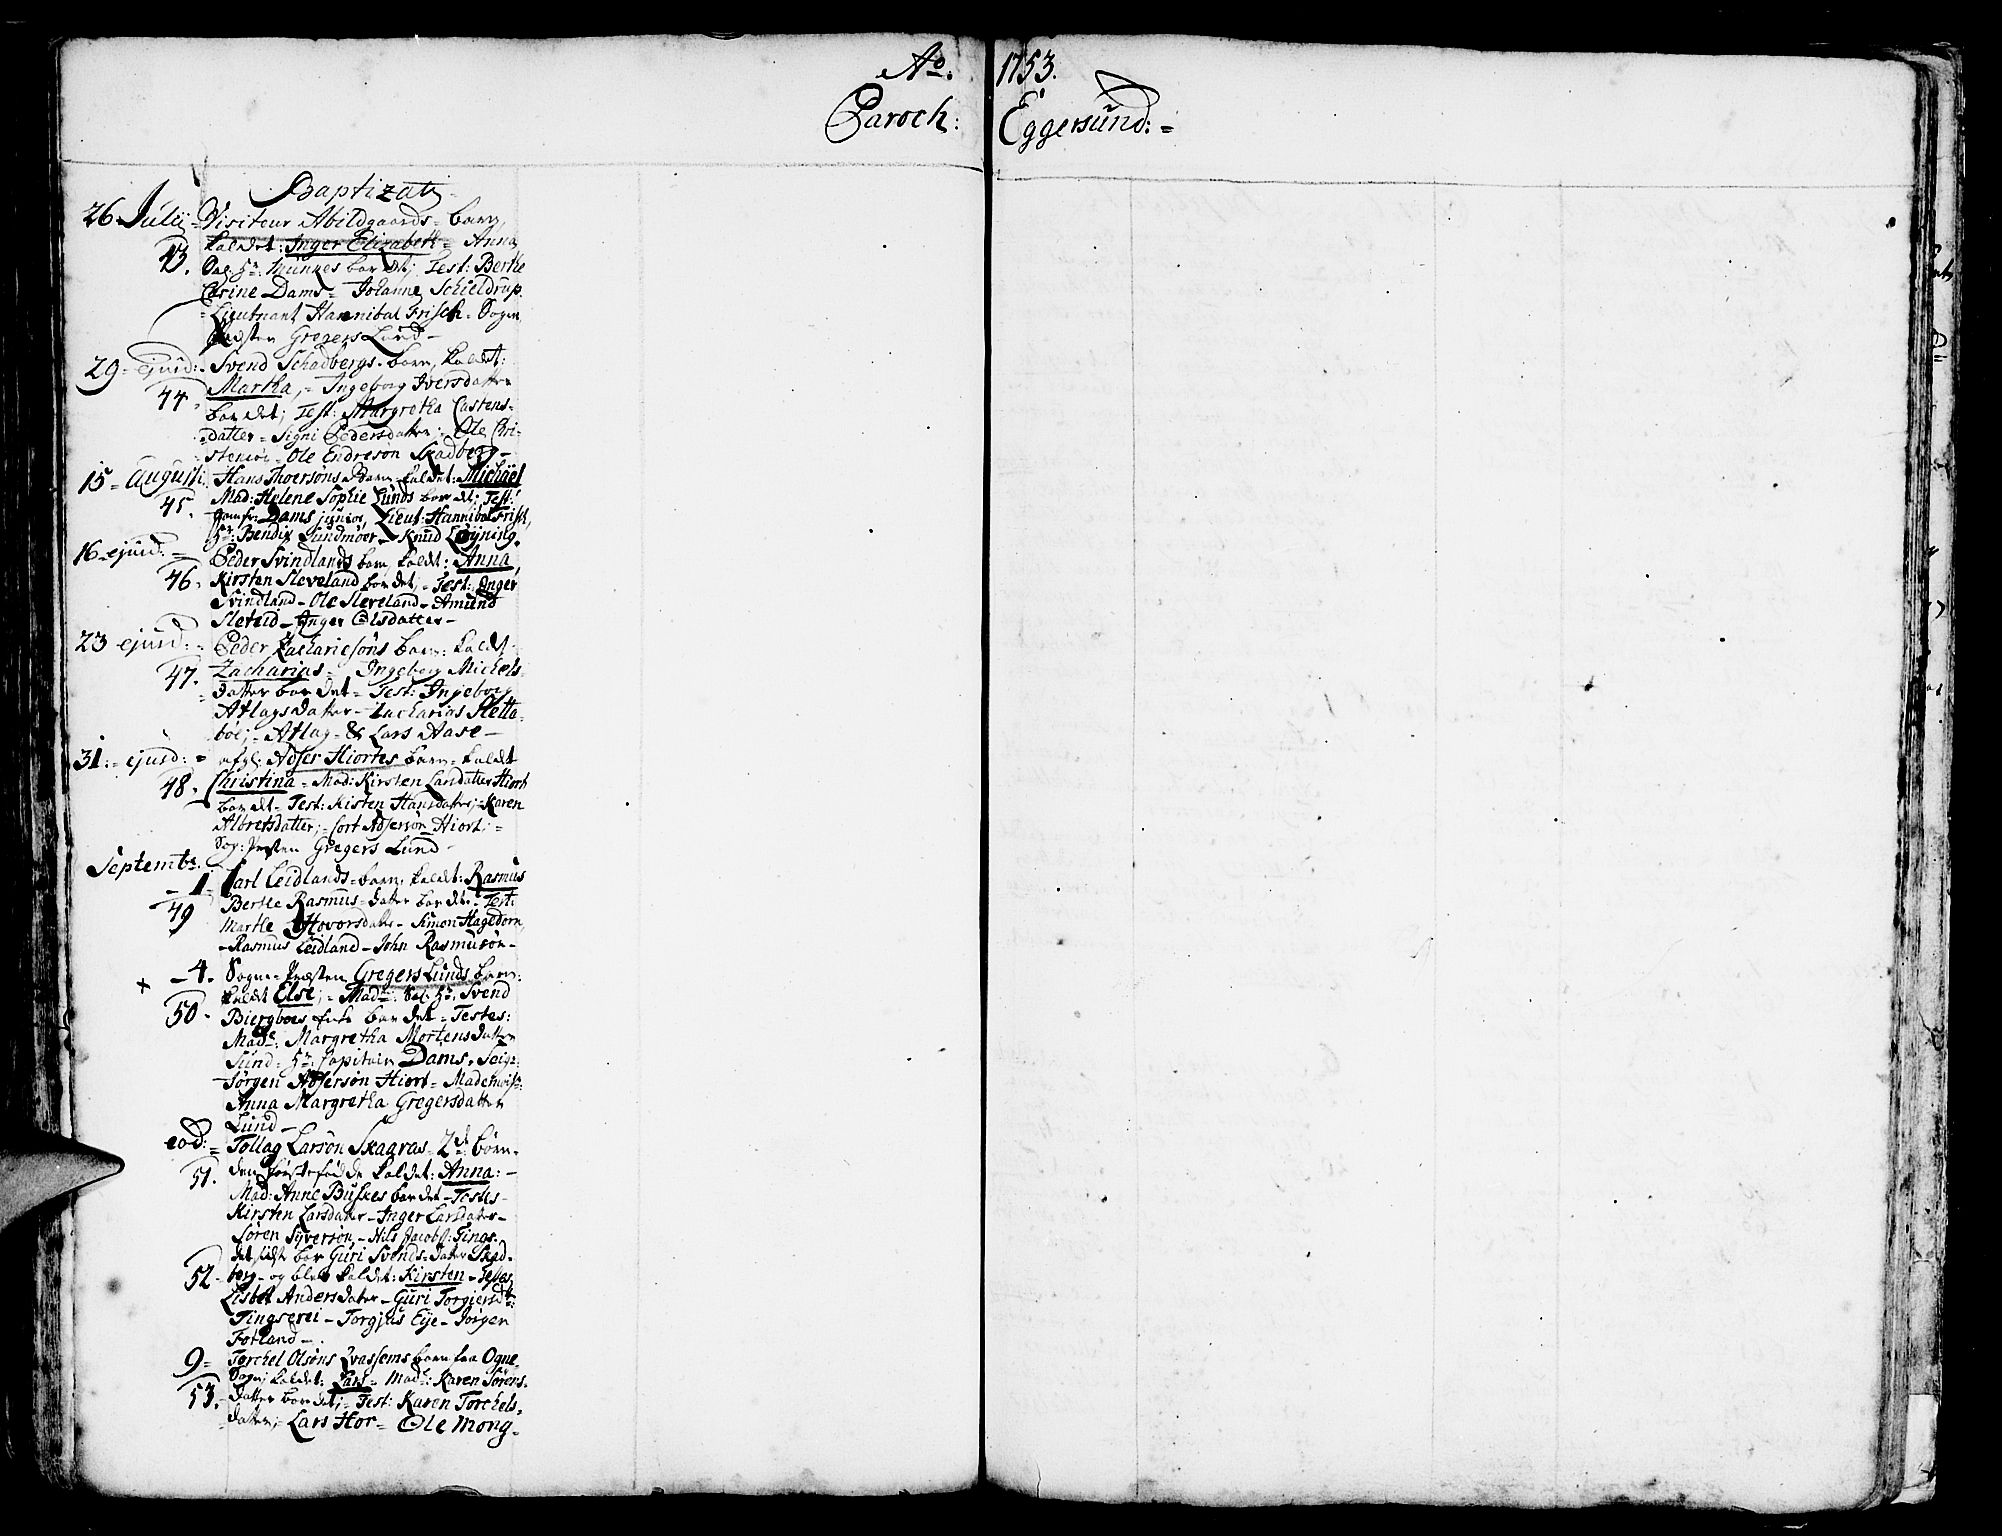 Ao. 1753.
Paroch: Eggersund:=
Baptizati
26 Julij = Visiteur Abildgaards = barn,
43. kaldet: Inger Elizabeth = Anna
Sal: Hr: Munkes bar det; Test: Berthe
Cirine Dams = Johanne Schieldrup.
= Lieutnant Hannibal Frisch = Sogne
Præsten Gregers Lund =
29 = ejusd: = Svend Schadbergs = barn, kaldet:
44. Martha, = Ingeborg Iversdatter
bar det; Test: Margretha Castens=
=datter = Signi Pedersdatter; = Ole Chri=
stensøn = Ole Endresøn Skadberg =
15 = Augusti. Hans Thoersøns Barn = kaldet: Michael
45. Mad: Helene Sophie Lunds bar det; Test:
Jomfr: Dams junior, Lieut: Hannibal Frisch,
Hr: Bendix Sundmøer = Knud Løyning.
16 = ejusd: = Peder Svindlands barn, kaldt: Anna
46. Kirsten Sleveland bar det; = Test: Inger
Svindland = Ole Sleveland = Amund
Sleteid = Inger Olsdatter =
23 ejusd: = Peder Zachariesøns barn: kaldt
47. Zacharias = Ingeborg Michels=
datter bar det = Test: Ingeborg
Atlagsdatter = Zacharias Sletta=
bøe; = Atlag = & Lars Aase =
31: = ejusd: = afgl: Adser Hiortes barn = kaldet
48. Christina = Mad: Kirsten Larsdatter Hiort
bar det = Test: Kisten Hansdatter; = Karen
Albretsdatter; = Cort Adsersøn Hiort; =
Sog: Præsten Gregers Lund =
Septembr.
- 1 = Carl Leidlands = barn, kaldet: Rasmus
49 Berthe Rasmus=datter bar det = Test:
Marthe Hovorsdatter = Simon Hagedorn,
= Rasmus Leidland = John Rasmusøn =
+ - 4. Sogne=Præsten Gregers Lunds barn:
50. kaldt Else; = Made: Sal: Hr. Svend
Biergboes Enke bar det = Testes:
Made: Margretha Mortensdatter
Lund = Hr: Capitain Dams, Seigr:
Jørgen Adsersøn Hiort = Mademois:
Anna Margretha Gregersdatter
Lund =
eod: = Tollag Larsøn Skaaras = 2de børn =
51. den førstefødde kaldet: Anna: =
Mad: Anne Buskes bar det = Testes =
Kirsten Larsdatter = Inger Larsdatter =
Søren Syversøn, = Nils Jacobs: Tings.
52 - det sidste bar Guri Svends=datter Skad=
berg = og blev kaldet: Kirsten = Testes,
Lisbet Andersdatter = Guri Torgiersdtr:
Tingserei = Torgjus Eye = Jørgen
Fotland =
9 = Torchel Olsøns Qvassems barn fra Ogne=
53. Sogn; kaldet: Lars = Made: Karen Sørens=
datter bar det; = Test: Karen Torchels=
datter; = Lars Hor = Ole Mong =